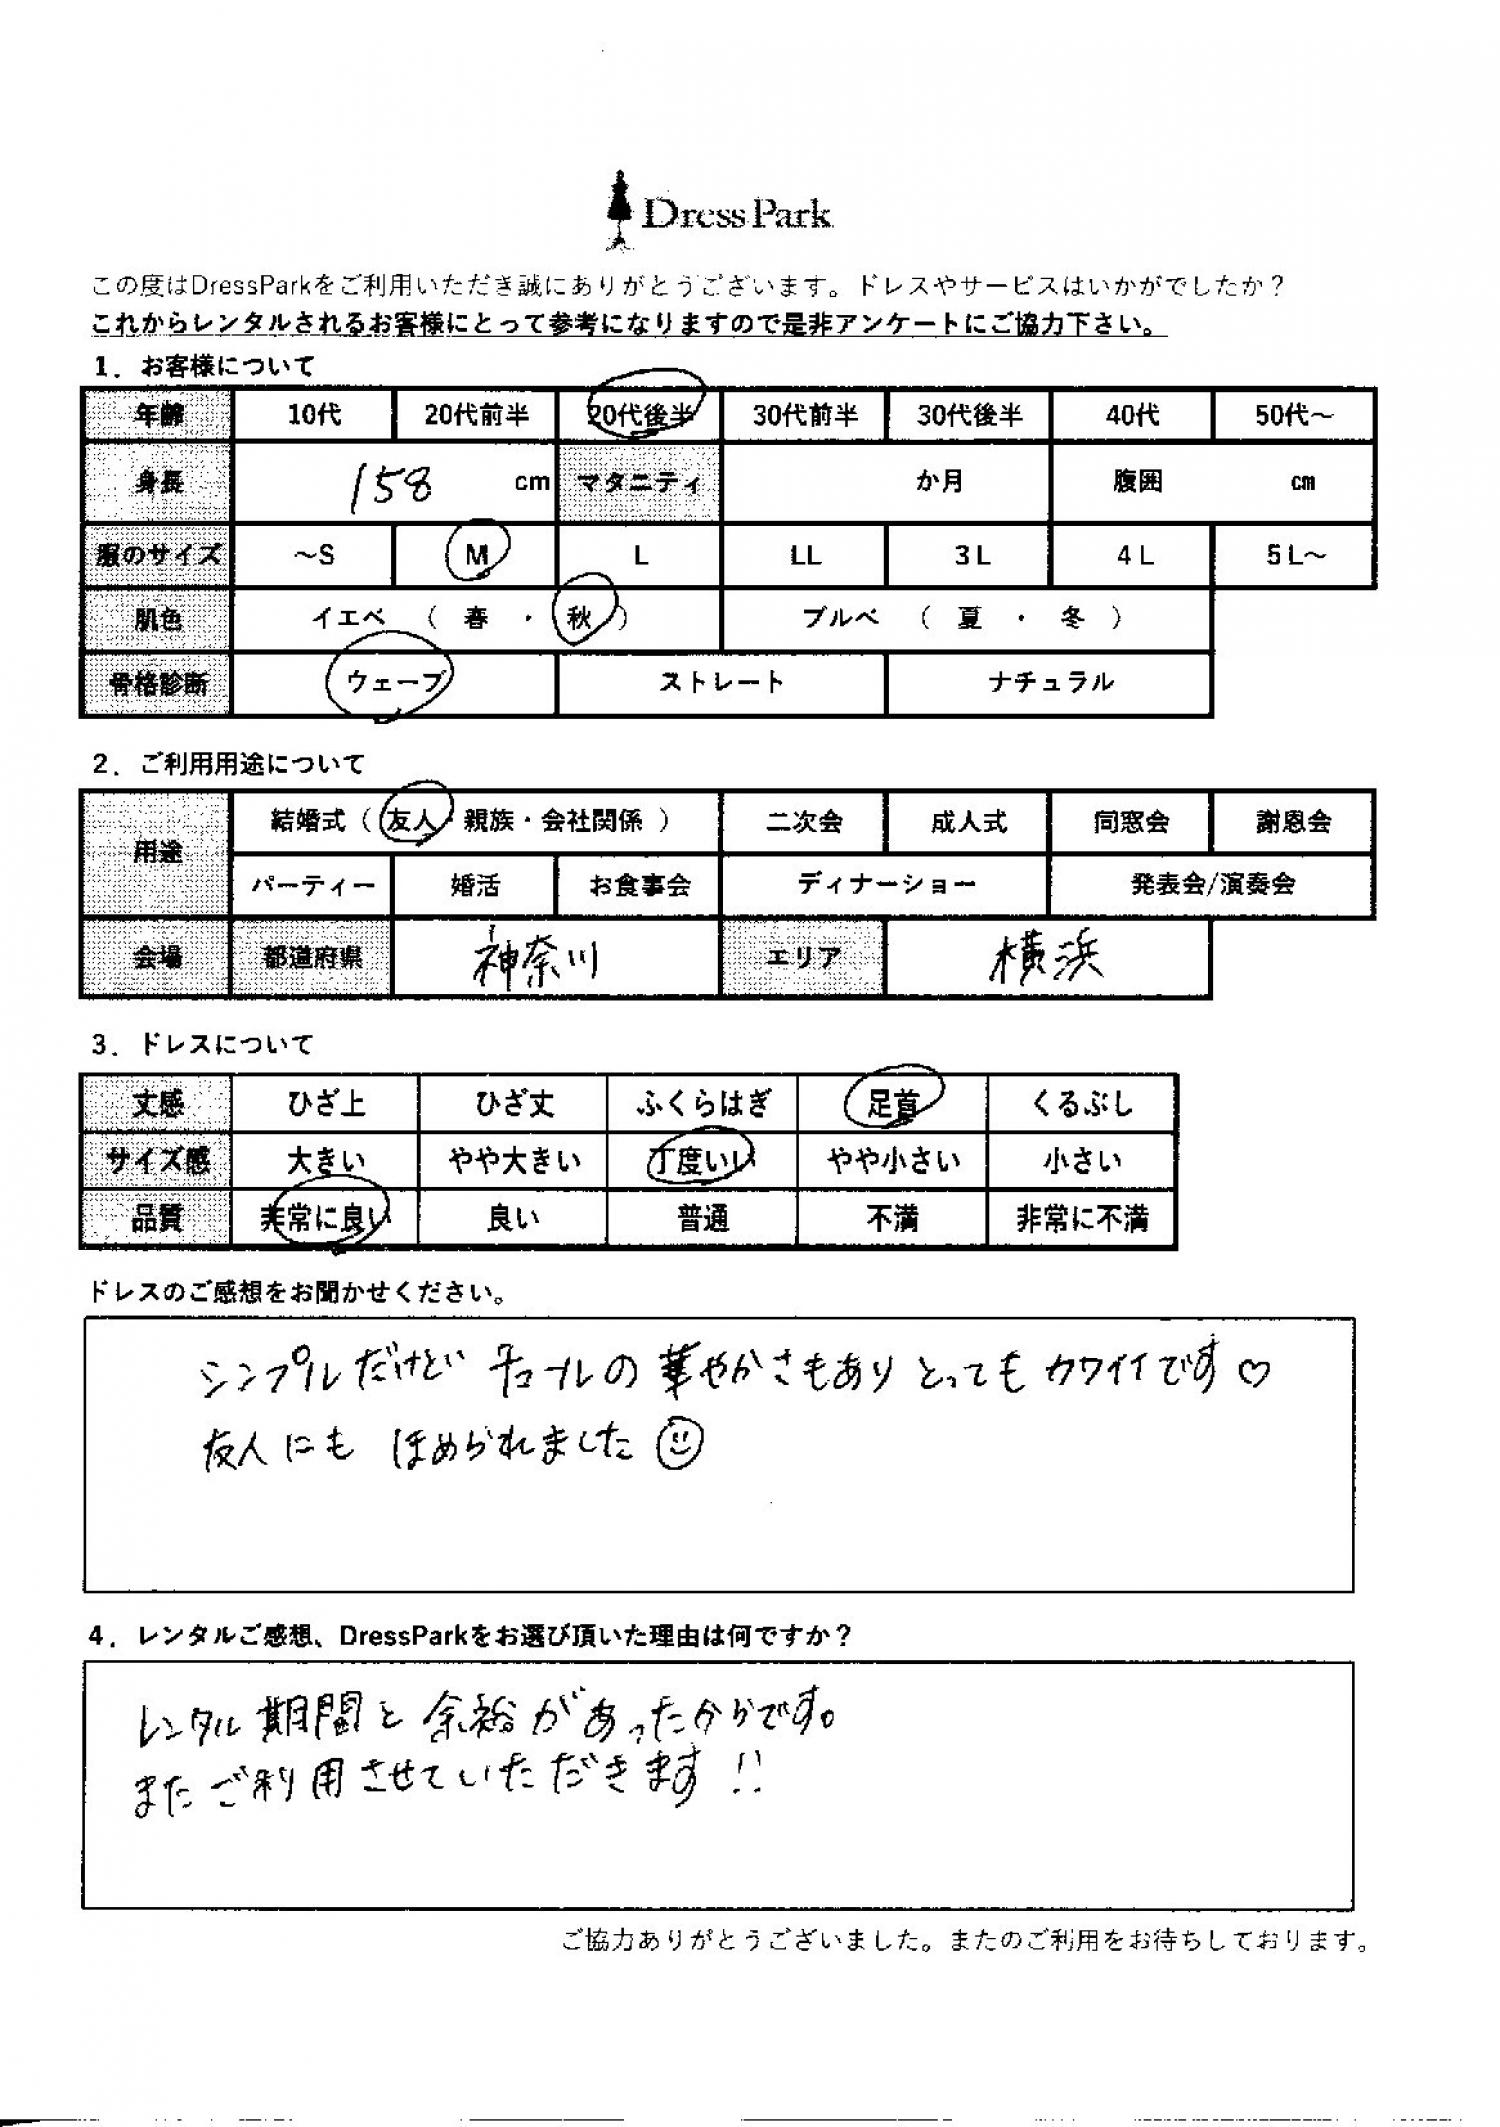 Dress Park
この度はDressParkをご利用いただき誠にありがとうございます。ドレスやサービスはいかがでしたか？
これからレンタルされるお客様にとって参考になりますので是非アンケートにご協力下さい。
1．お客様について
年齢 10代 20代前半 20代後半 30代前半 30代後半 40代 50代～
身長 158 cm マタニティ か月 腹囲 cm
服のサイズ ～S M L LL 3L 4L 5L～
肌色 イエベ （ 春 ・ 秋 ） ブルベ （ 夏 ・ 冬 ）
骨格診断 ウェーブ ストレート ナチュラル
2．ご利用用途について
用途 結婚式（ 友人・親族・会社関係 ） 二次会 成人式 同窓会 謝恩会
パーティー 婚活 お食事会 ディナーショー 発表会/演奏会
会場 都道府県 神奈川 エリア 横浜
3．ドレスについて
丈感 ひざ上 ひざ丈 ふくらはぎ 足首 くるぶし
サイズ感 大きい やや大きい 丁度いい やや小さい 小さい
品質 非常に良い 良い 普通 不満 非常に不満
ドレスのご感想をお聞かせください。
シンプルだけど チュールの華やかさもあり とってもカワイイです♡
友人にも ほめられました☺
4．レンタルご感想、DressParkをお選び頂いた理由は何ですか？
レンタル期間と余裕があったからです。
またご利用させていただきます!!
ご協力ありがとうございました。またのご利用をお待ちしております。